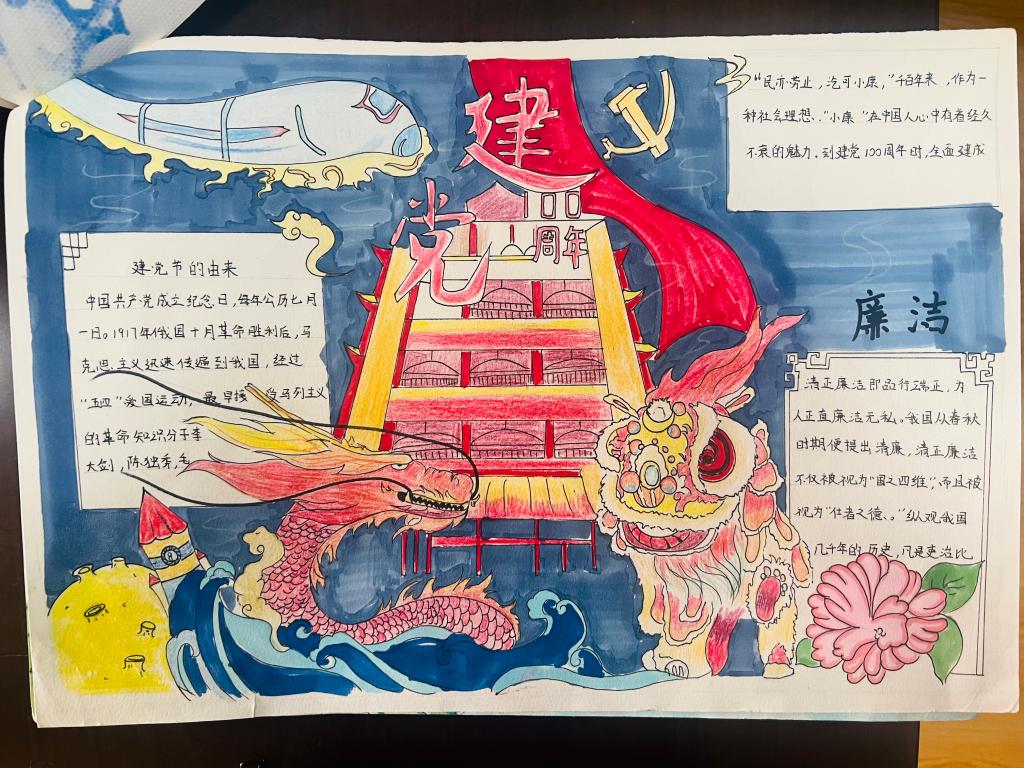 建党
100
周年
"民亦劳止，汔可小康，"千百年来，作为一
种社会理想、"小康"在中国人心中有着经久
不衰的魅力。到建党100周年时，全面建成
建党节的由来
中国共产党成立纪念日，每年公历七月
一日。1917年俄国十月革命胜利后，马
克思主义迅速传遍到我国，经过
"五四"爱国运动，最早接受马列主义
的革命知识分子李
大钊，陈独秀，毛
廉洁
清正廉洁即品行端正，为
人正直廉洁无私。我国从春秋
时期便提出清廉，清正廉洁
不仅被视为"国之四维"，而且被
视为"仕者之德、。"纵观我国
几千年的历史，凡是吏治比